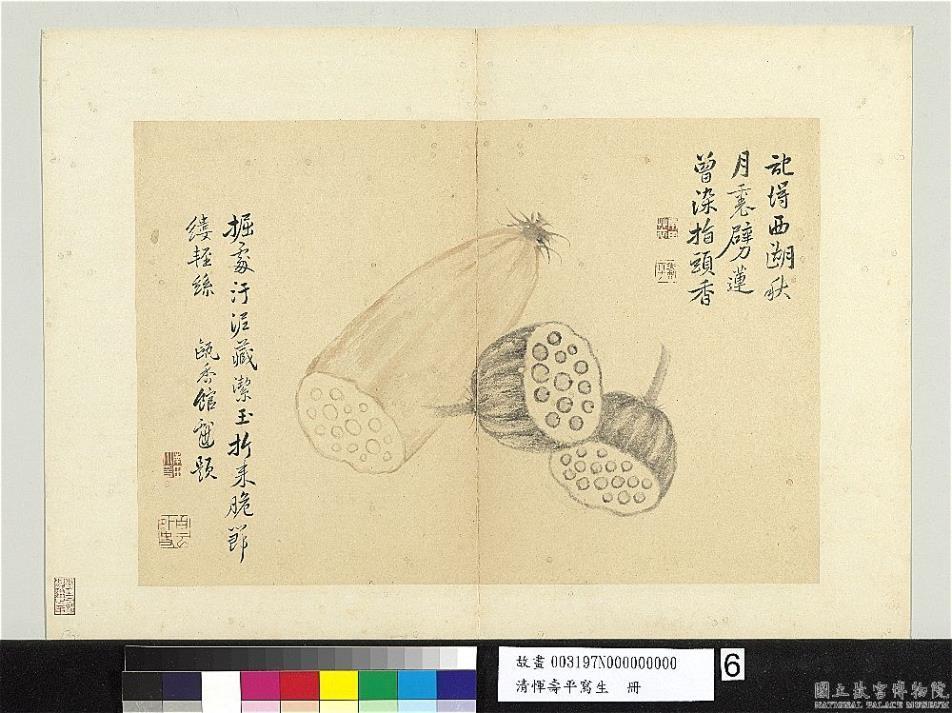 記得西湖秋
月裏劈蓮
曾染指頭香
掘處汙泥藏潔玉折來脆節
縷輕絲
甌香館題
故畫 003197N000000000
清惲壽平寫生 冊
6
國立故宮博物院
NATIONAL PALACE MUSEUM